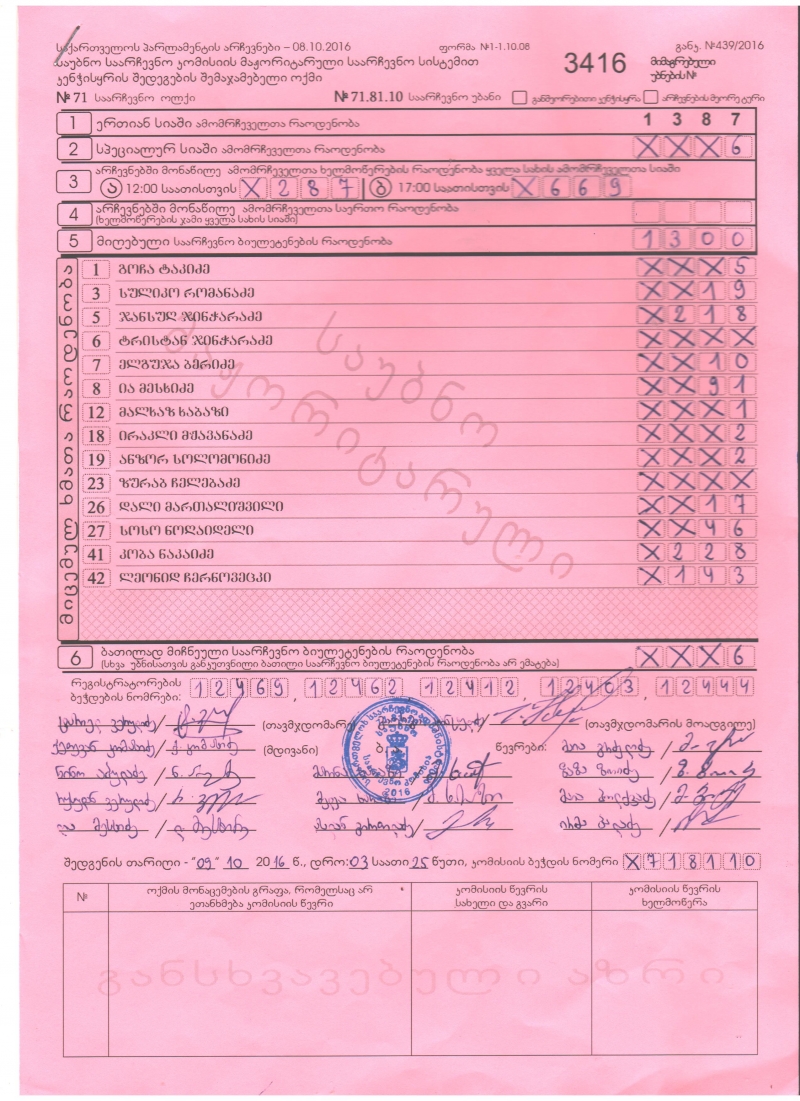 საქართველოს პარლამენტის არჩევნები – 08.10.2016 ფორმა №1-1.10.08 განკ. №439/2016
საუბნო საარჩევნო კომისიის მაჟორიტარული საარჩევნო სისტემით 3416 მიმაგრებული
კენჭისყრის შედეგების შემაჯამებელი ოქმი უბნების №
№ 71 საარჩევნო ოლქი № 71.81.10 საარჩევნო უბანი განმეორებითი კენჭისყრა არჩევნების მეორე ტური
1 ერთიან სიაში ამომრჩეველთა რაოდენობა 1 3 8 7
2 სპეციალურ სიაში ამომრჩეველთა რაოდენობა X X X 6
არჩევნებში მონაწილე ამომრჩეველთა ხელმოწერების რაოდენობა ყველა სახის ამომრჩეველთა სიაში
3 ა 12:00 საათისთვის X 2 8 7 ბ 17:00 საათისთვის X 6 6 9
4 არჩევნებში მონაწილე ამომრჩეველთა საერთო რაოდენობა
(ხელმოწერების ჯამი ყველა სახის სიაში)
5 მიღებული საარჩევნო ბიულეტენების რაოდენობა 1 3 0 0
მიცემულ ხმათა რაოდენობა
1 გოჩა ტაკიძე X X X 5
3 სულიკო რომანაძე X X 1 9
5 ჯანსულ ჯინჭარაძე X 2 1 8
6 ტრისტან ჯინჭარაძე X X X X
7 ელგუჯა ბერიძე X X 1 0
8 ია მესხიძე X X 9 1
12 მალხაზ ხაბაზი X X X 1
18 ირაკლი მჟავანაძე X X X 2
19 ანზორ სოლომონიძე X X X 2
23 ზურაბ ჩელებაძე X X X X
26 დალი მართალიშვილი X X 1 7
27 სოსო ნოღაიდელი X X 4 6
41 კობა ნაკაიძე X 2 2 8
42 ლეონიდ ჩერნოვეცკი X 1 4 3
საუბნო
მაჟორიტარული
6 ბათილად მიჩნეული საარჩევნო ბიულეტენების რაოდენობა X X X 6
(სხვა უბნისათვის განკუთვნილი ბათილი საარჩევნო ბიულეტენების რაოდენობა არ ემატება)
რეგისტრატორების
ბეჭდების ნომრები: 12469, 12462, 12412, 12403, 12444
(თავმჯდომარე) (თავმჯდომარის მოადგილე)
(მდივანი) წევრები:
2016
შედგენის თარიღი - "09" 10 2016 წ., დრო: 03 საათი 25 წუთი, კომისიის ბეჭდის ნომერი X 7 1 8 1 1 0
№ ოქმის მონაცემების გრაფა, რომელსაც არ ეთანხმება კომისიის წევრი კომისიის წევრის სახელი და გვარი კომისიის წევრის ხელმოწერა
განსხვავებული აზრი